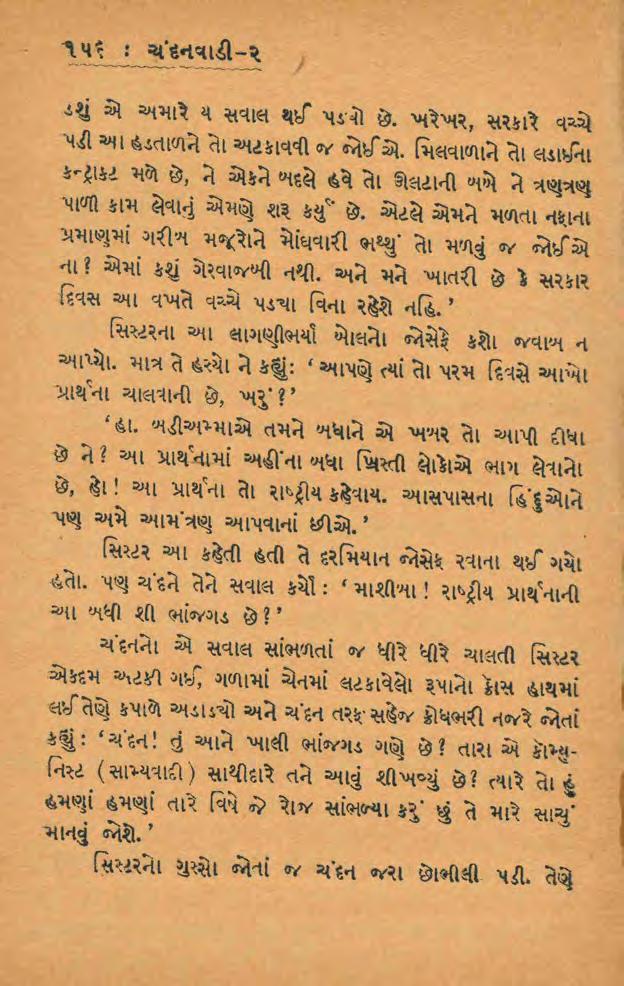 ૧૫૬ : ચંદનવાડી-૨
ડશું એ અમારે ય સવાલ થઈ પડવો છે. ખરેખર, સરકારે વચ્ચે
પડી આ હડતાળને તો અટકાવવી જ જોઈએ. મિલવાળાને તો લડાઈના
કન્ટ્રાક્ટ મળે છે, ને એકને બદલે હવે તો ઊલટાની બબે ને ત્રણત્રણ
પાળી કામ લેવાનું એમણે શરૂ કર્યું છે. એટલે એમને મળતા નફાના
પ્રમાણમાં ગરીબ મજૂરોને મોંઘવારી ભથ્થું તો મળવું જ જોઈએ
ના? એમાં કશું ગેરવાજબી નથી. અને મને ખાતરી છે કે સરકાર
દિવસ આ વખતે વચ્ચે પડ્યા વિના રહેશે નહિ.’
સિસ્ટરના આ લાગણીભર્યા બોલનો જોસેફે કશો જવાબ ન
આપ્યો. માત્ર તે હસ્યો ને કહ્યું: ‘આપણે ત્યાં તો પરમ દિવસે આખો
પ્રાર્થના ચાલવાની છે, ખરું?’
‘હા. બડીઅમ્માએ તમને બધાને એ ખબર તો આપી દીધા
છે ને? આ પ્રાર્થનામાં અહીંના બધા ખ્રિસ્તી લોકોએ ભાગ લેવાનો
છે, હો! આ પ્રાર્થના તો રાષ્ટ્રીય કહેવાય. આસપાસના હિંદુઓને
પણ અમે આમંત્રણ આપવાનાં છીએ.’
સિસ્ટર આ કહેતી હતી તે દરમિયાન જોસેફ રવાના થઈ ગયો
હતો. પણ ચંદને તેને સવાલ કર્યો : ‘માશીબા! રાષ્ટ્રીય પ્રાર્થનાની
આ બધી શી ભાંજગડ છે?’
ચંદનનો એ સવાલ સાંભળતાં જ ધીરે ધીરે ચાલતી સિસ્ટર
એકદમ અટકી ગઈ, ગળામાં ચેનમાં લટકાવેલો રૂપાનો ક્રોસ હાથમાં
લઈ તેણે કપાળે અડાડ્યો અને ચંદન તરફ સહેજ ક્રોધભરી નજરે જોતાં
કહ્યું : ‘ચંદન! તું આને ખાલી ભાંજગડ ગણે છે? તારા એ કૉમ્યુ-
નિસ્ટ (સામ્યવાદી) સાથીદારે તને આવું શીખવ્યું છે? ત્યારે તો હું
હમણાં હમણાં તારે વિષે જે રોજ સાંભળ્યા કરું છું તે મારે સાચું
માનવું જોશે.’
સિસ્ટરનો ગુસ્સો જોતાં જ ચંદન જરા છોભીલી પડી. તેણે